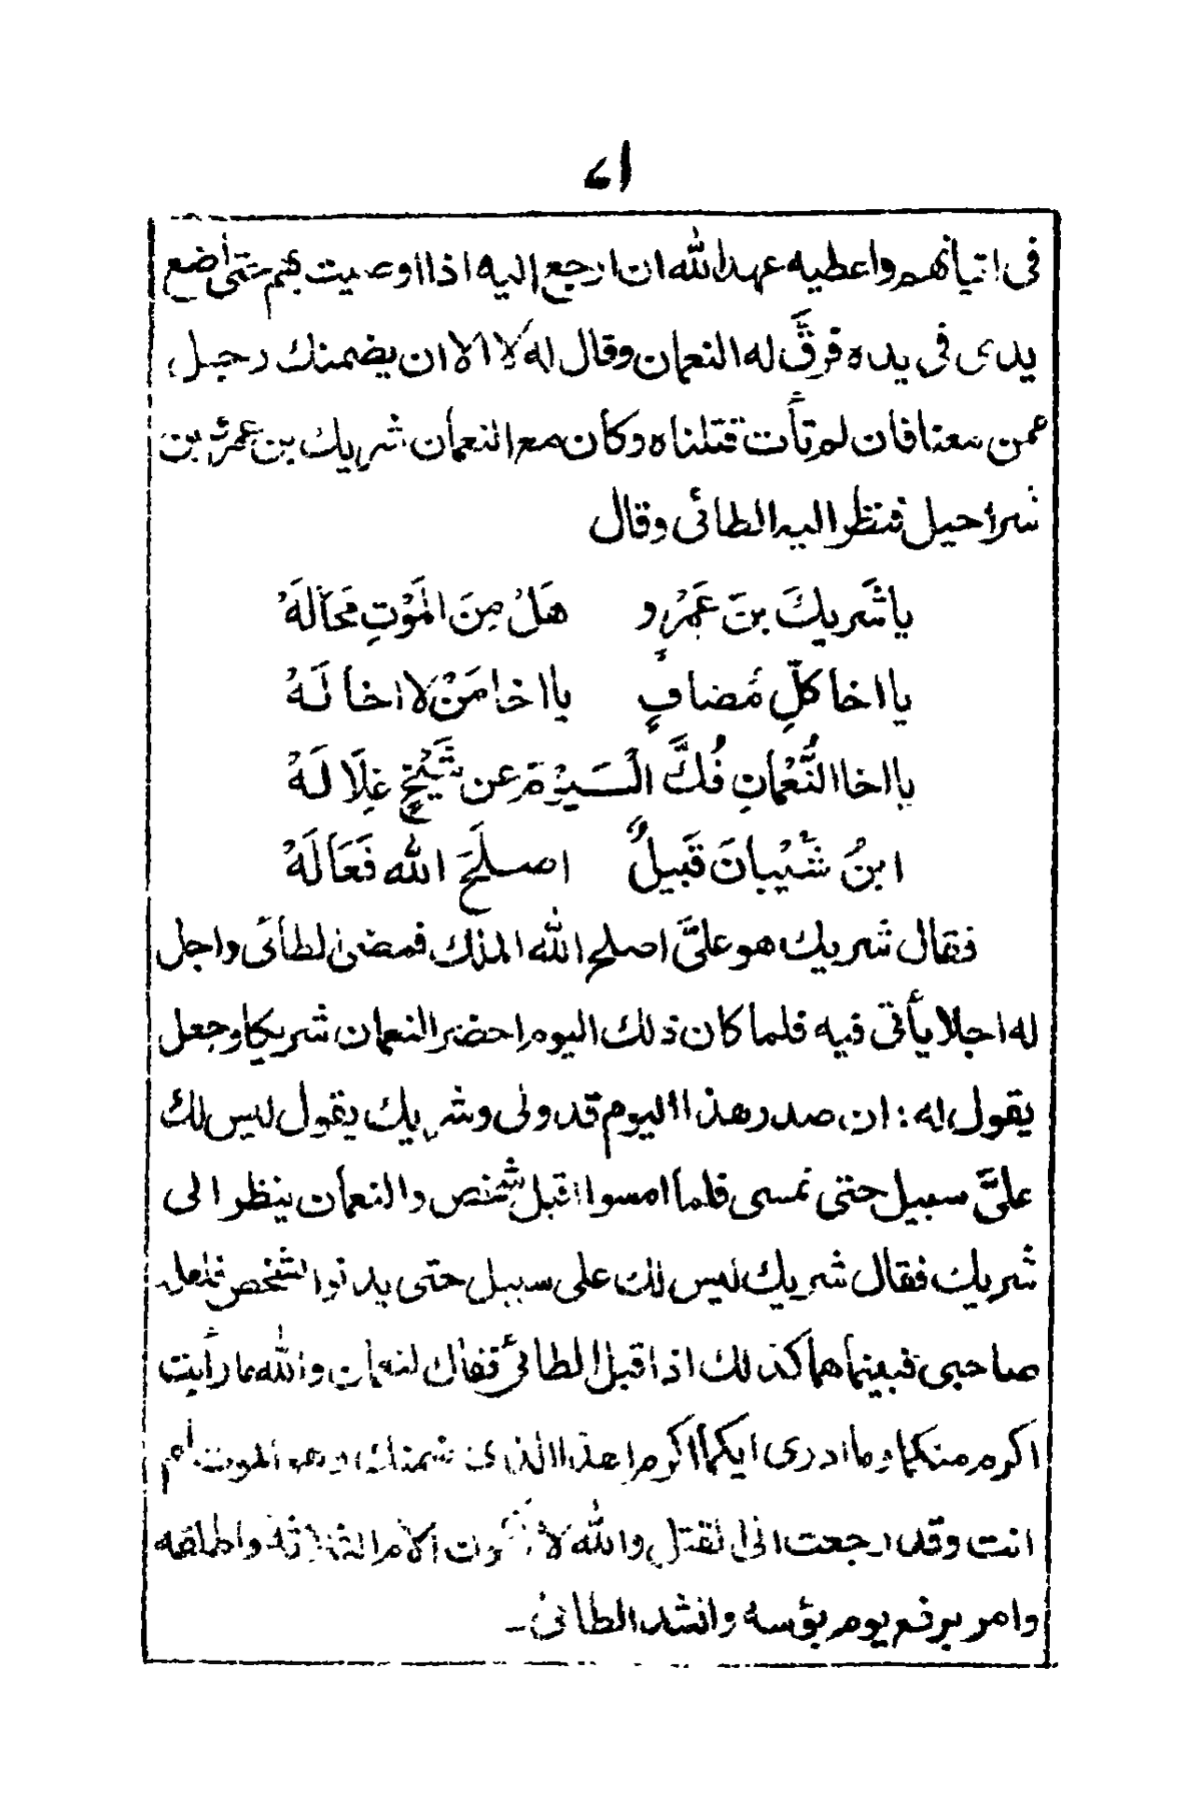 ٤١
فى اتيانهم واعطيه عهد الله ان ارجع اليه اذا اوصيت بهم حتى أضع
يدى فى يده فرقَّ له النعمان وقال له لا الا ان يضمنك رجل
عمن معنا فان لم تأت قتلناه وكان مع النعمان شريك بن عمرو بن
شراحيل فنظر اليه الطائى وقال
يا شَريكَ بنَ عَمْرٍو هَلْ مِنَ المَوْتِ مَحَالَهْ
يا اخا كلِّ مُضافٍ يا اخا مَنْ لا اخا لَهْ
يا اخا النُّعْمانِ فُكَّ الْيَوْمَ عن شَيْخٍ غِلَا لَهْ
ابنُ شَيْبانَ قَبيلٌ اصلَحَ الله فَعَالَهْ
فقال شريك هو علىَّ اصلح الله الملك فمضى الطائى واجل
له اجلا يأتى فيه فلما كان ذلك اليوم احضر النعمان شريكا وجعل
يقول له : ان صدر هذا اليوم قد ولى وشريك يقول ليس لك
علىَّ سبيل حتى نمسى فلما امسوا اقبل شخص والنعمان ينظر الى
شريك فقال شريك ليس لك على سبيل حتى يدنوا الشخص فلعله
صاحبى فبينما هما كذلك اذ اقبل الطائى فقال لنعمان والله ما رأيت
اكرم منكما وما ادرى ايكما اكرم اهذا الذى ضمنك وهو الموت أم
انت وقد رجعت الى القتل والله لا اكون الأم الثلاثة واطلقه
وامر برفع يوم بؤسه وانشد الطائى ـ